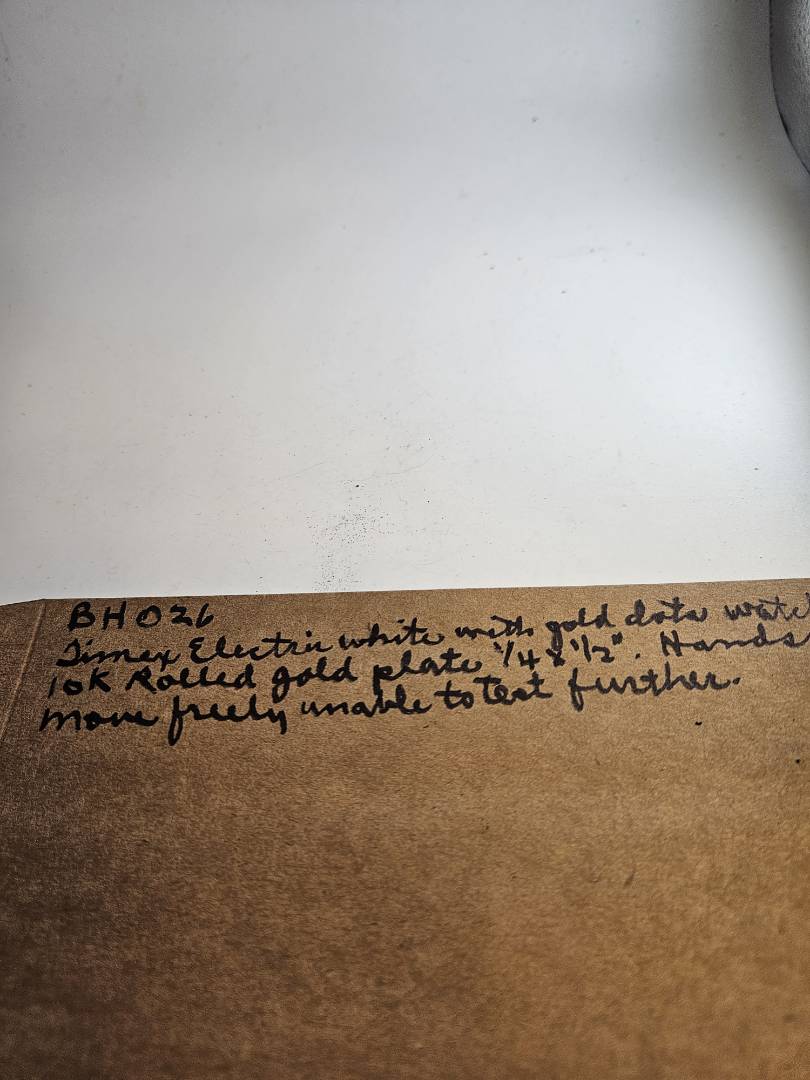 BH026
Timex Electric white with gold dots watch
10K Rolled gold plate 1/4 x 1/2". Hands
move freely unable to test further.